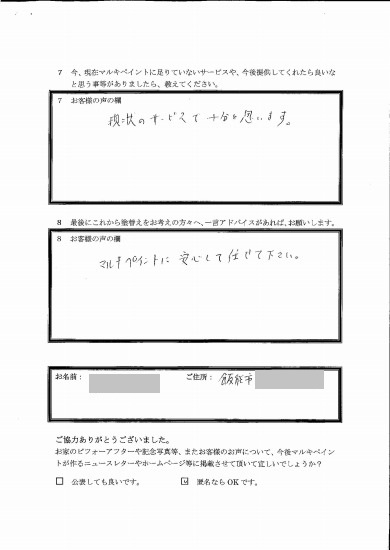 7 今、現在マルキペイントに足りていないサービスや、今後提供してくれたら良いな
と思う事等がありましたら、教えてください。
7 お客様の声の欄
現状のサービスで十分と思います。
8 最後にこれから塗替えをお考えの方々へ、一言アドバイスがあれば、お願いします。
8 お客様の声の欄
マルキペイントに安心して任せて下さい。
お名前： ご住所： 飯能市
ご協力ありがとうございました。
お家のビフォーアフターや記念写真等、またお客様のお声について、今後マルキペイン
トが作るニュースレターやホームページ等に掲載させて頂いて宜しいでしょうか？
□ 公表しても良いです。 ☑ 匿名なら OK です。